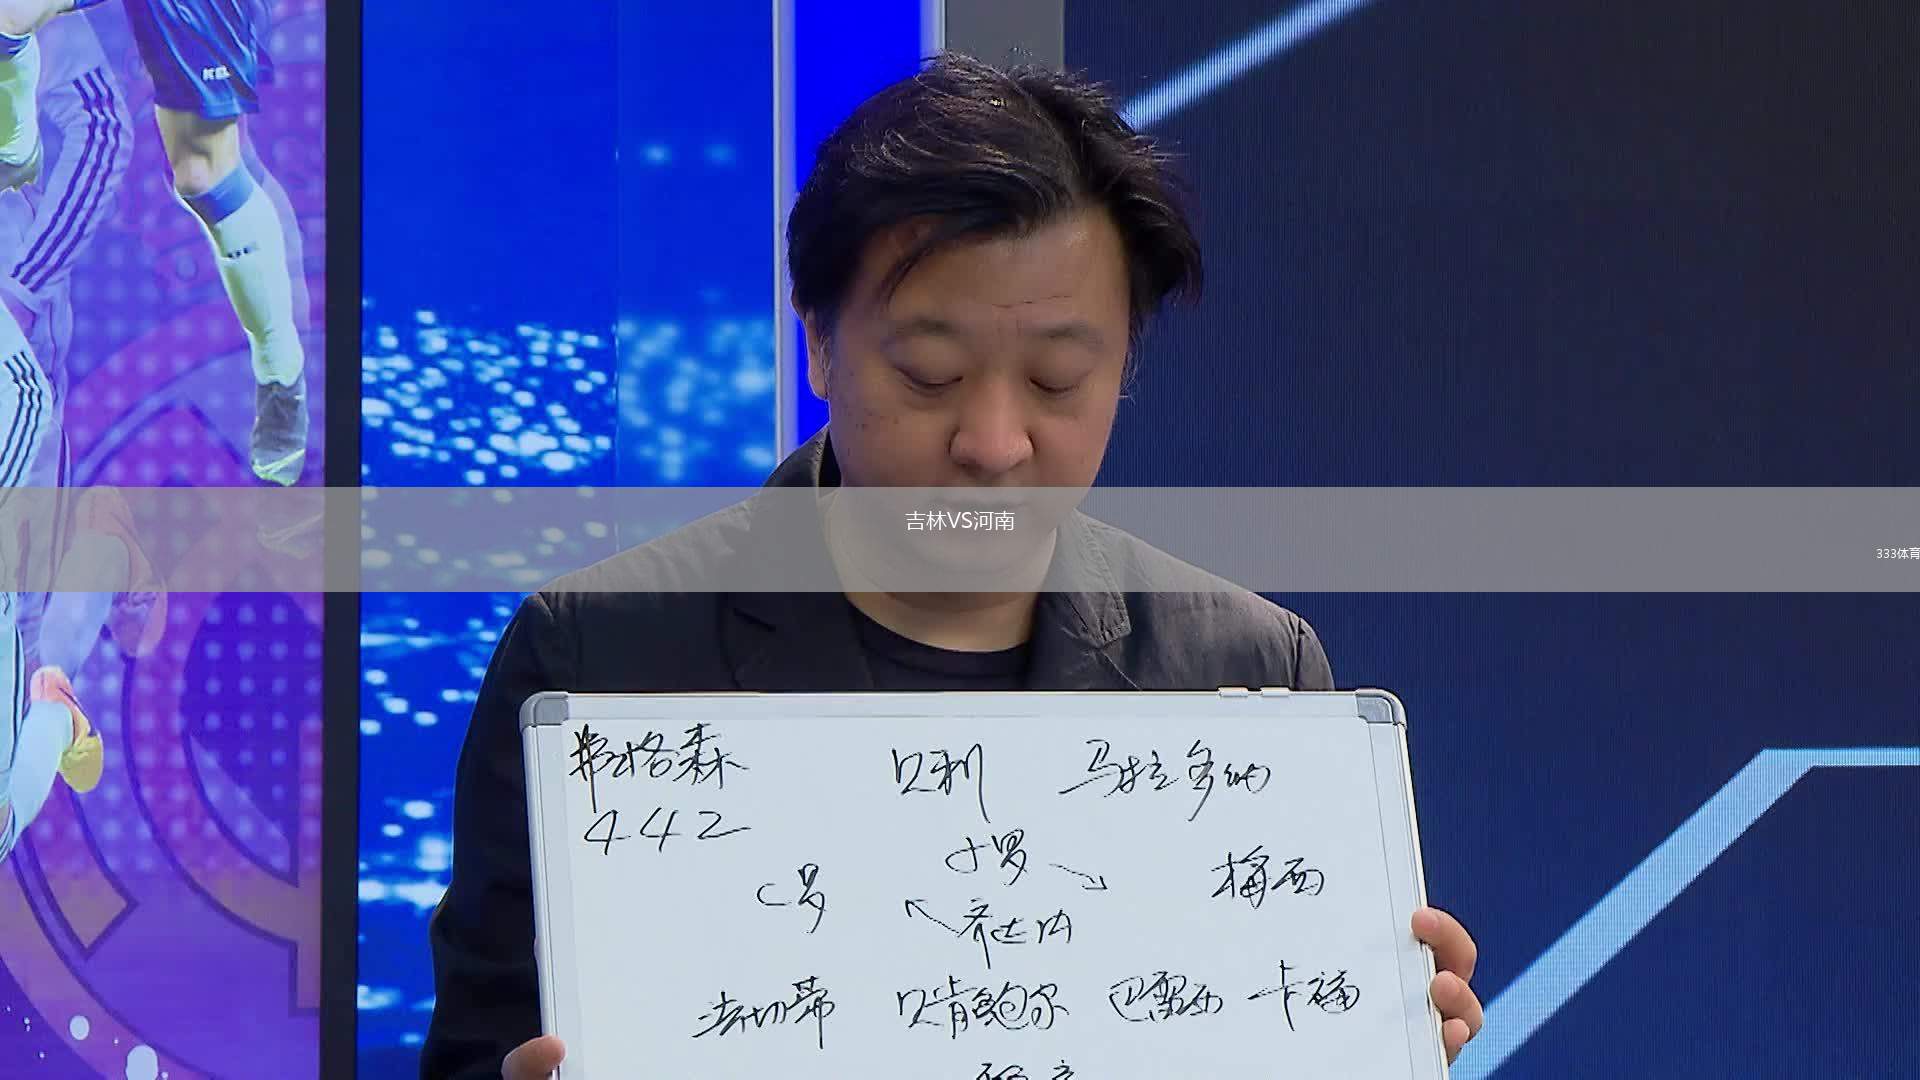 吉林VS河南
333体育
弗格森 贝利 马拉多纳
442
小罗
C罗 梅西
齐达内
法切蒂 贝肯鲍尔 巴雷西 卡福